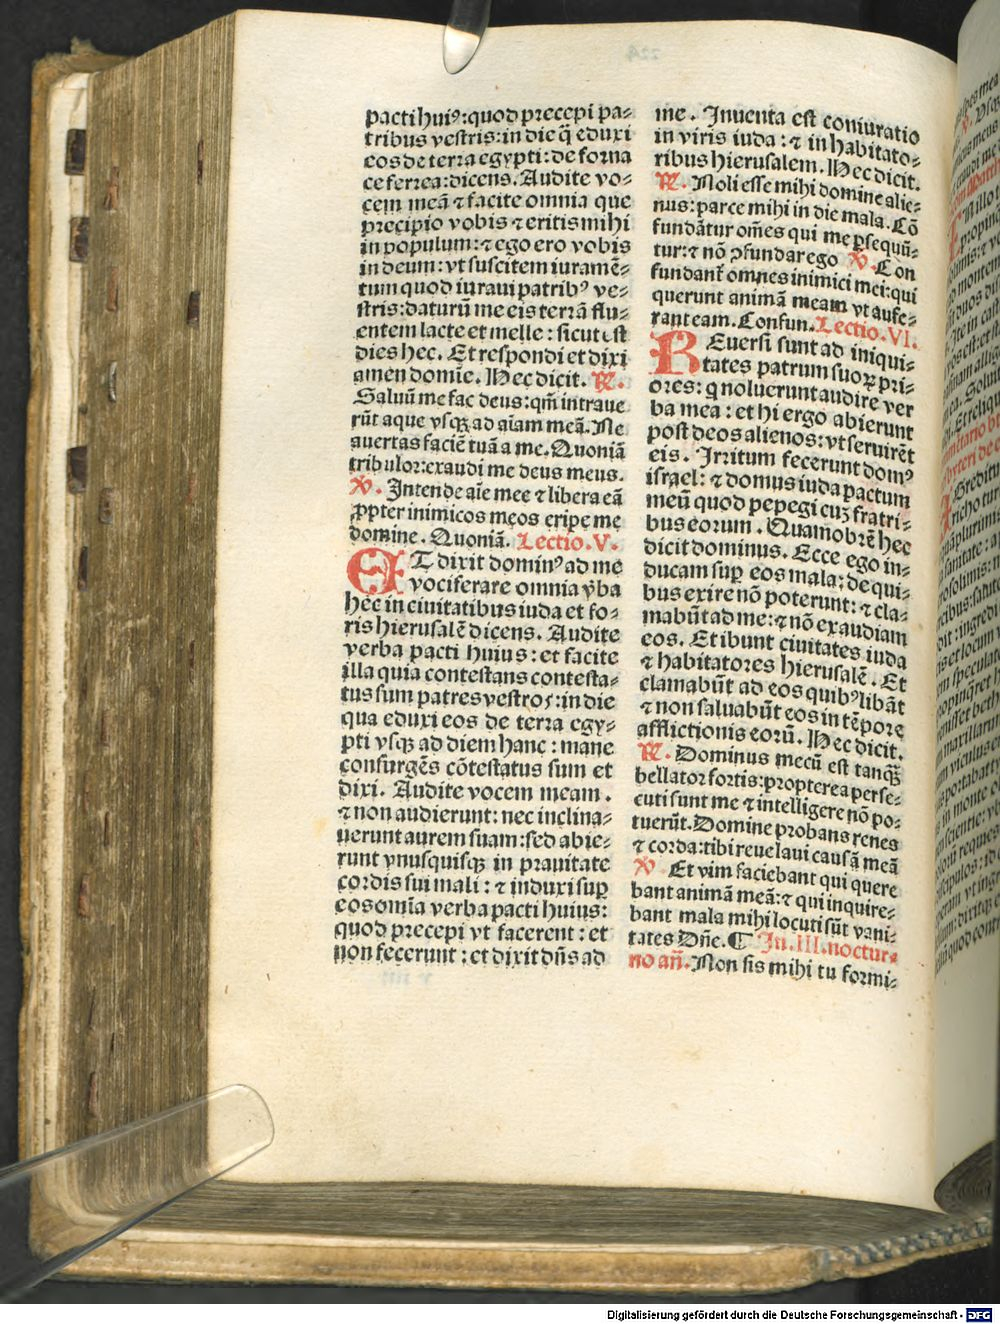 pacti huiꝰ: quod precepi pa⸗
tribus vestris: in die q̄ eduxi
eos de terra egypti: de forna
ce ferrea: dicens. Audite vo⸗
cem meā ⁊ facite omnia que
precipio vobis ⁊ eritis mihi
in populum: ⁊ ego ero vobis
in deum: vt suscitem iuramē⸗
tum quod iuraui patribꝰ ve⸗
stris: daturū me eis terrā flu⸗
entem lacte et melle: sicut est
dies hec. Et respondi et dixi
amen domīe. Hec dicit. ℟.
Saluū me fac deus: qm̄ intraue
rūt aque vsqꝫ ad aīam meā. Ne
auertas faciē tuā a me. Quoniā
tribulor: exaudi me deus meus.
℣. Intende aīe mee ⁊ libera eā
ꝓpter inimicos meos eripe me
domine. Quoniā. Lectio. V.
ET dixit dominꝰ ad me
vociferare omnia v̄ba
hec in ciuitatibus iuda et fo⸗
ris hierusalē dicens. Audite
verba pacti huius: et facite
illa quia contestans contesta⸗
tus sum patres vestros: in die
qua eduxi eos de terra egy⸗
pti vsqꝫ ad diem hanc: mane
consurgēs cōtestatus sum et
dixi. Audite vocem meam.
⁊ non audierunt: nec inclina⸗
uerunt aurem suam: sed abie⸗
runt vnusquisqꝫ in prauitate
cordis sui mali: ⁊ induxi suꝑ
eos omīa verba pacti huius:
quod precepi vt facerent: et
non fecerunt: et dixit dn̄s ad
me. Inuenta est coniuratio
in viris iuda: ⁊ in habitato⸗
ribus hierusalem. Hec dicit.
℟. Noli esse mihi domine alie⸗
nus: parce mihi in die mala. Cō
fundātur om̄es qui me ꝑsequū⸗
tur: ⁊ nō ꝯfundar ego ℣. Con
fundanť omnes inimici mei: qui
querunt animā meam vt aufe⸗
rant eam. Confun. Lectio. VI.
REuersi sunt ad iniqui⸗
tates patrum suoꝝ pri⸗
ores: q noluerunt audire ver
ba mea: et hi ergo abierunt
post deos alienos: vt seruirēt
eis. Irritum fecerunt domꝰ
israel: ⁊ domus iuda pactum
meū quod pepegi cuꝫ fratri⸗
bus eorum. Quamobrē hec
dicit dominus. Ecce ego in⸗
ducam suꝑ eos mala: de qui⸗
bus exire nō poterunt: ⁊ cla⸗
mabūt ad me: ⁊ nō exaudiam
eos. Et ibunt ciuitates iuda
⁊ habitatores hierusalē. Et
clamabūt ad eos quibꝰ libāt
⁊ non saluabūt eos in tēpore
afflictionis eorū. Hec dicit.
℟. Dominus mecū est tanqꝫ
bellator fortis: propterea perse⸗
cuti sunt me ⁊ intelligere nō po⸗
tuerūt. Domine probans renes
⁊ corda: tibi reuelaui causā meā
℣ Et vim faciebant qui quere
bant animā meā: ⁊ qui inquire⸗
bant mala mihi locuti sūt vani⸗
tates Dn̄e. ¶ In. III. noctur⸗
no an̄. Non sis mihi tu formi⸗
Digitalisierung gefördert durch die Deutsche Forschungsgemeinschaft - DFG